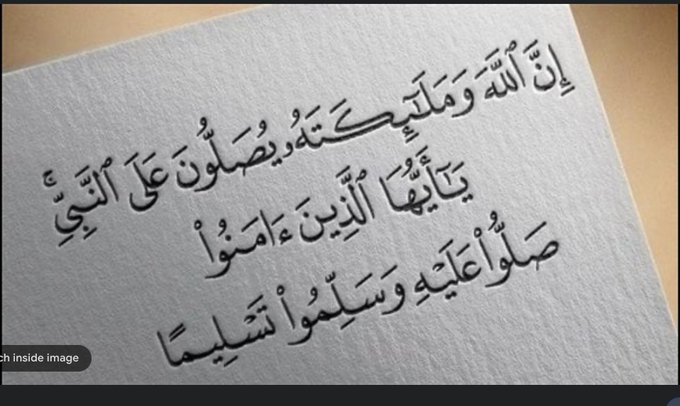 إِنَّ ٱللَّهَ وَمَلَـٰٓئِكَتَهُۥ يُصَلُّونَ عَلَى ٱلنَّبِىِّ ۚ
يَـٰٓأَيُّهَا ٱلَّذِينَ ءَامَنُوا۟
صَلُّوا۟ عَلَيْهِ وَسَلِّمُوا۟ تَسْلِيمًا
ch inside image